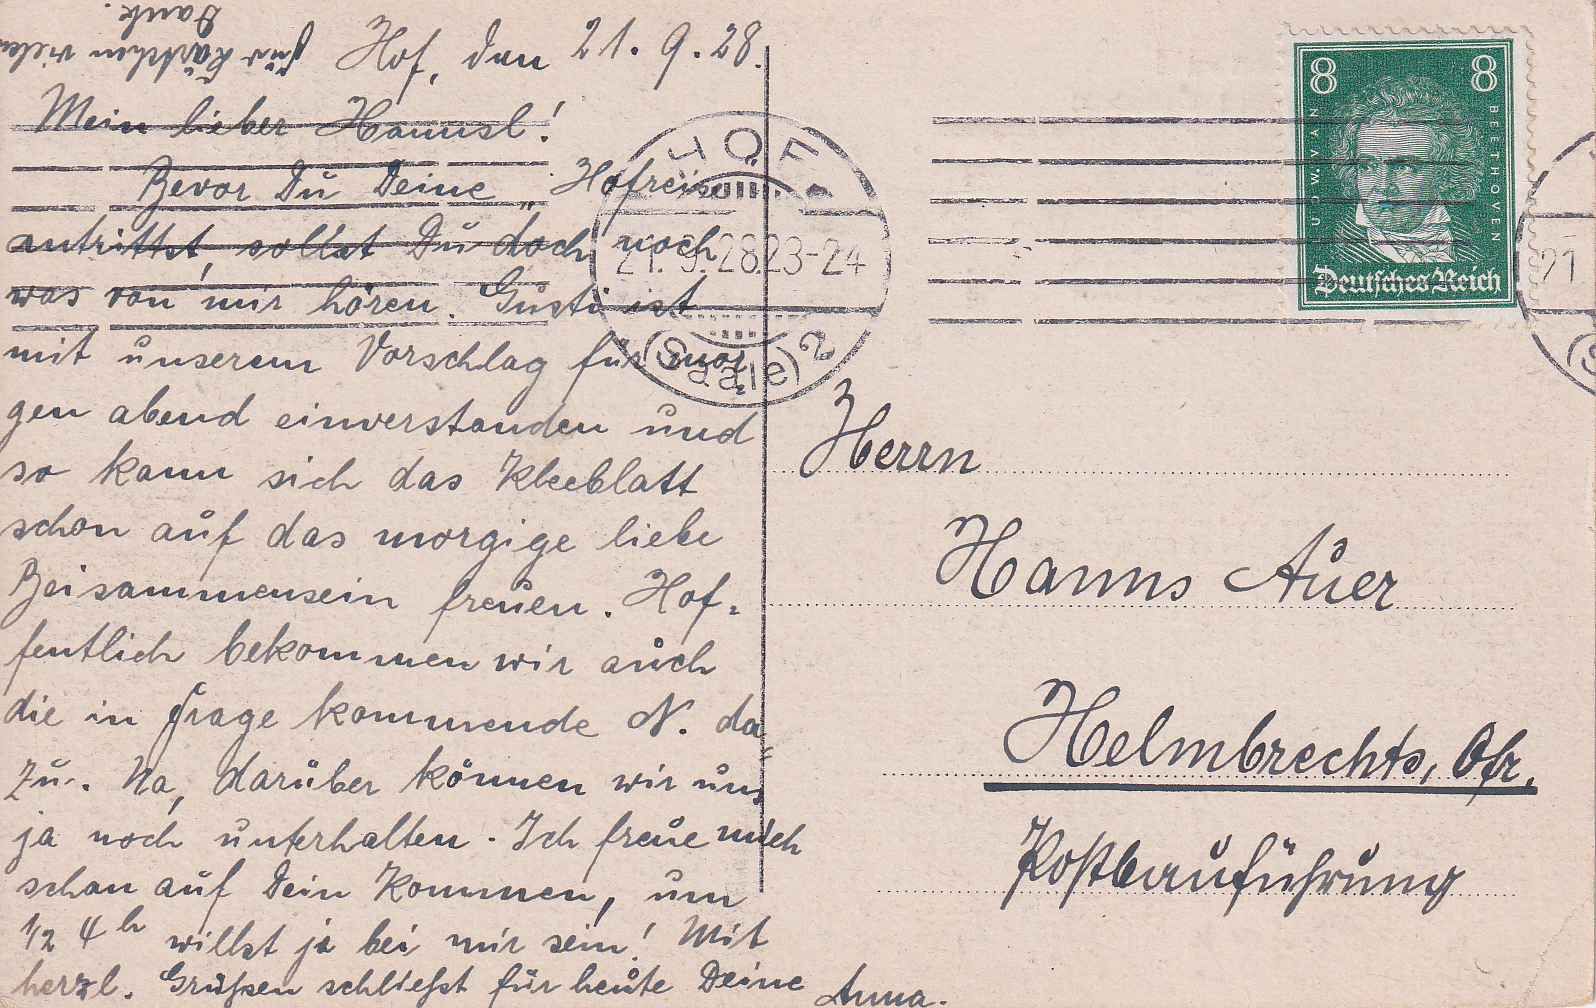 Hof, den 21.9.28.
Mein lieber Hannsl!
Bevor Du Deine „Hofreise
antrittst, sollst Du doch noch
was von mir hören. Gusti ist
mit unserem Vorschlag für mor-
gen abend einverstanden und
so kann sich das Kleeblatt
schon auf das morgige liebe
Beisammensein freuen. Hof-
fentlich bekommen wir auch
die in Frage kommende N. da-
zu. Na, darüber können wir uns
ja noch unterhalten. Ich freue mich
schon auf Dein Kommen, um
1/2 4 h willst ja bei mir sein! Mit
herzl. Grüßen schließt für heute Deine Anna.
Fürs Kärtchen vielen
Dank.
HOF
21.9.28.23-24
(Saale) 2
8 8
LUDW. VAN BEETHOVEN
Deutsches Reich
21
(S
Herrn
Hanns Auer
Helmbrechts, Ofr.
Postbauführung